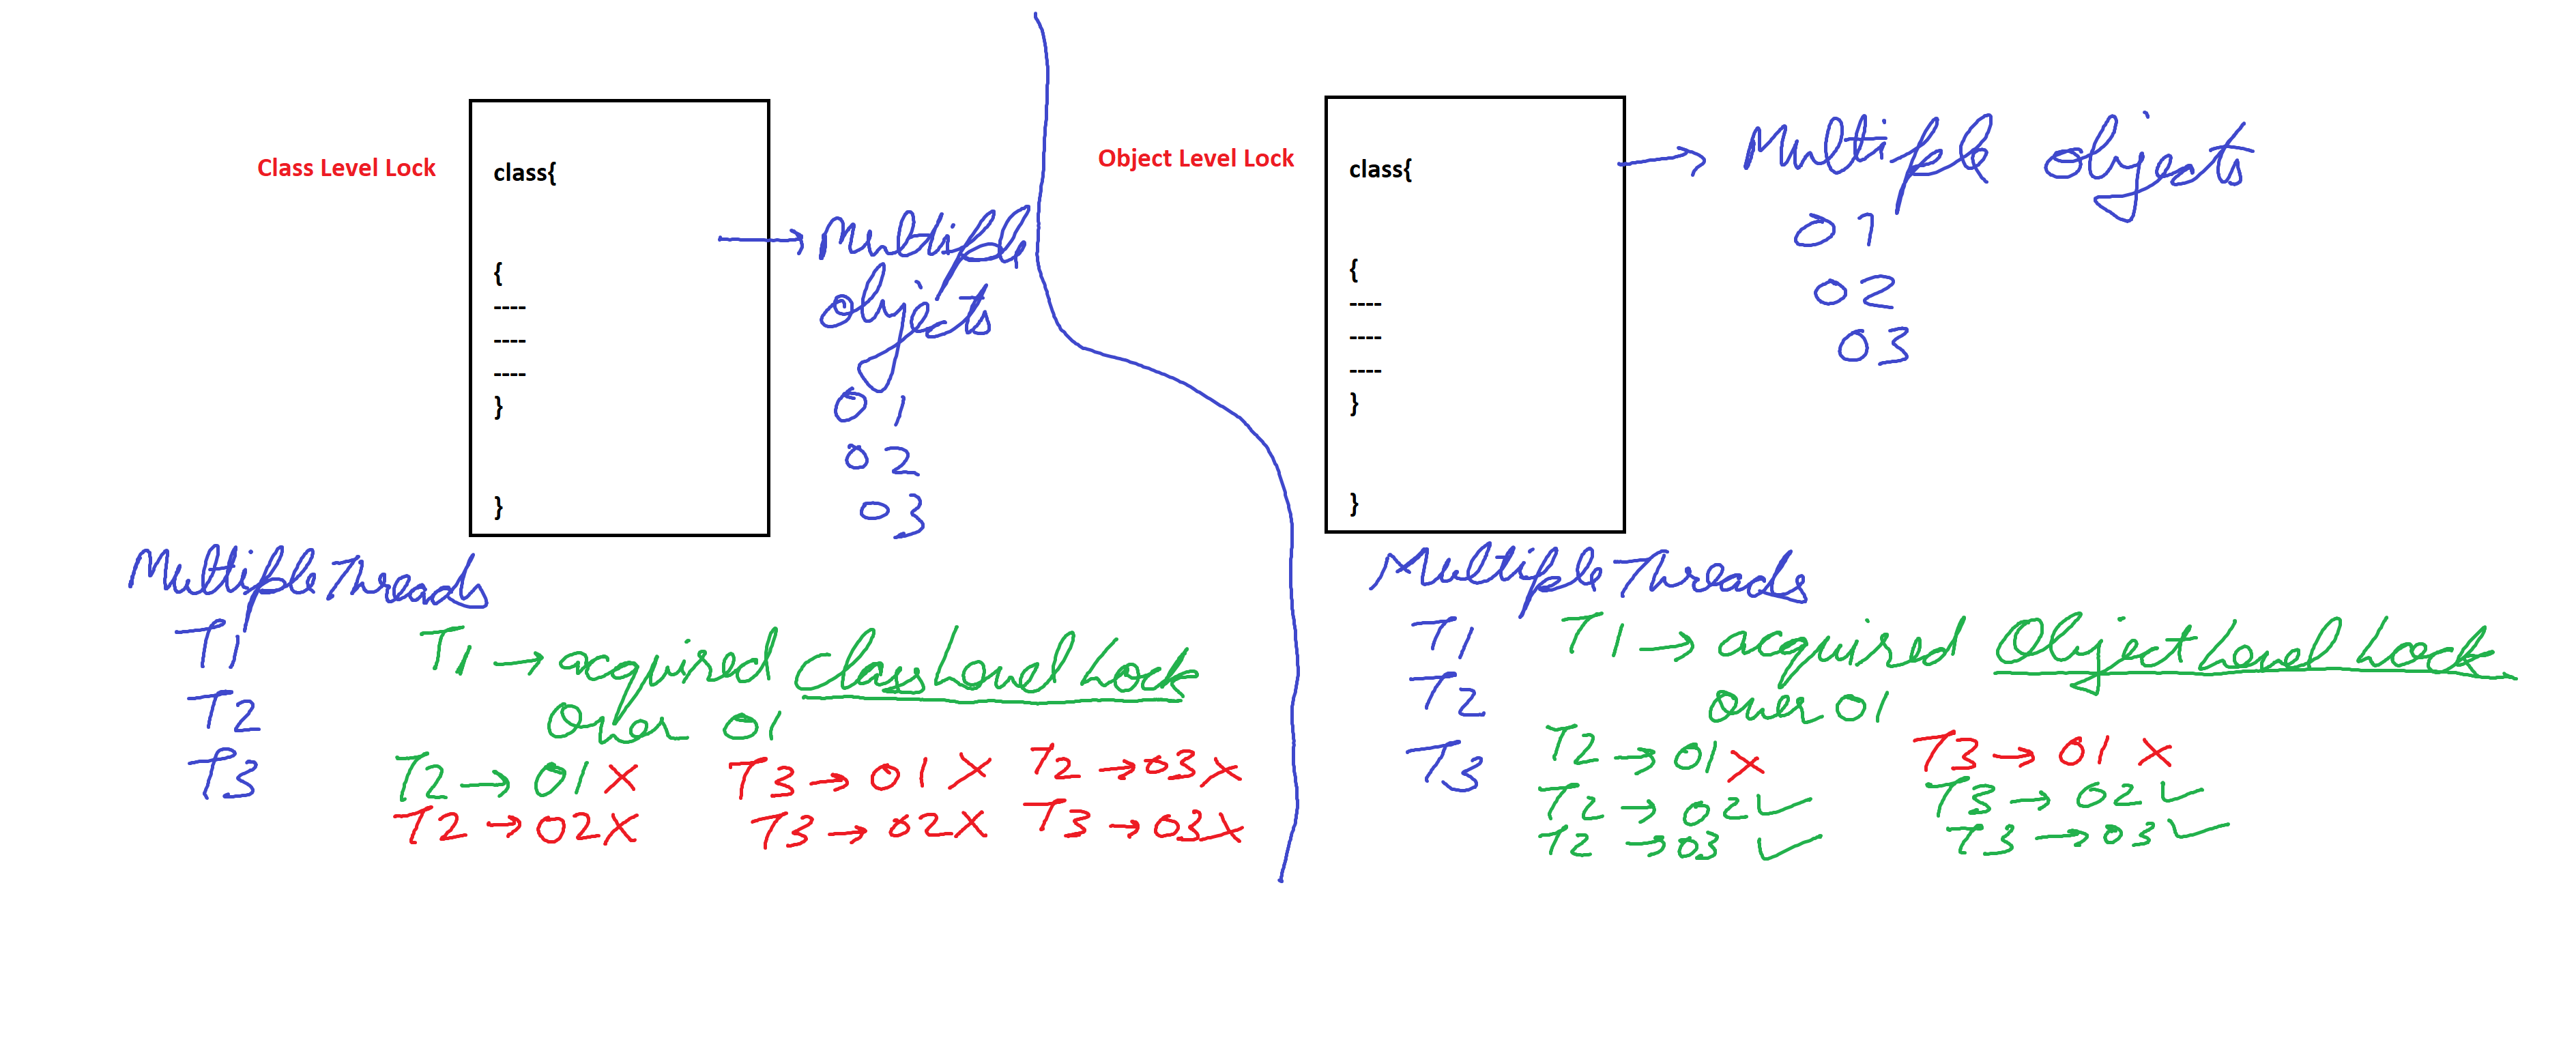 Class Level Lock
class{
{
----
----
----
}
}
Multiple
objects
O1
O2
O3
Multiple Threads
T1
T2
T3
T1 → acquired Class Level Lock
over O1
T2 → O1 X
T2 → O2 X
T3 → O1 X
T3 → O2 X
T2 → O3 X
T3 → O3 X
Object Level Lock
class{
{
----
----
----
}
}
Multiple objects
O1
O2
O3
Multiple Threads
T1
T2
T3
T1 → acquired Object Level Lock
over O1
T2 → O1 X
T2 → O2 ✓
T2 → O3 ✓
T3 → O1 X
T3 → O2 ✓
T3 → O3 ✓